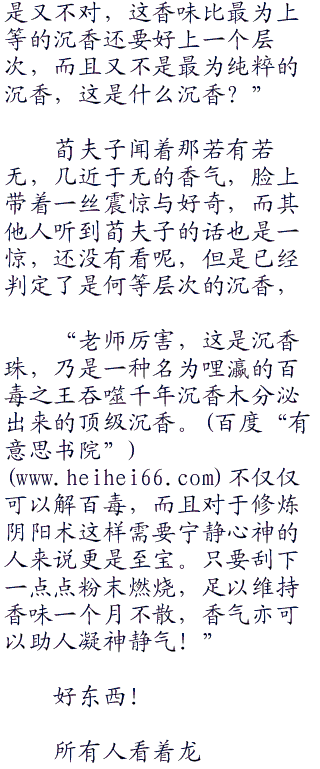 是又不对，这香味比最为上
等的沉香还要好上一个层
次，而且又不是最为纯粹的
沉香，这是什么沉香？”
荀夫子闻着那若有若
无，几近于无的香气，脸上
带着一丝震惊与好奇，而其
他人听到荀夫子的话也是一
惊，还没有看呢，但是已经
判定了是何等层次的沉香，
“老师厉害，这是沉香
珠，乃是一种名为哩瀛的百
毒之王吞噬千年沉香木分泌
出来的顶级沉香。(百度“有
意思书院”)
(www.heihei66.com)不仅仅
可以解百毒，而且对于修炼
阴阳术这样需要宁静心神的
人来说更是至宝。只要刮下
一点点粉末燃烧，足以维持
香味一个月不散，香气亦可
以助人凝神静气！”
好东西！
所有人看着龙